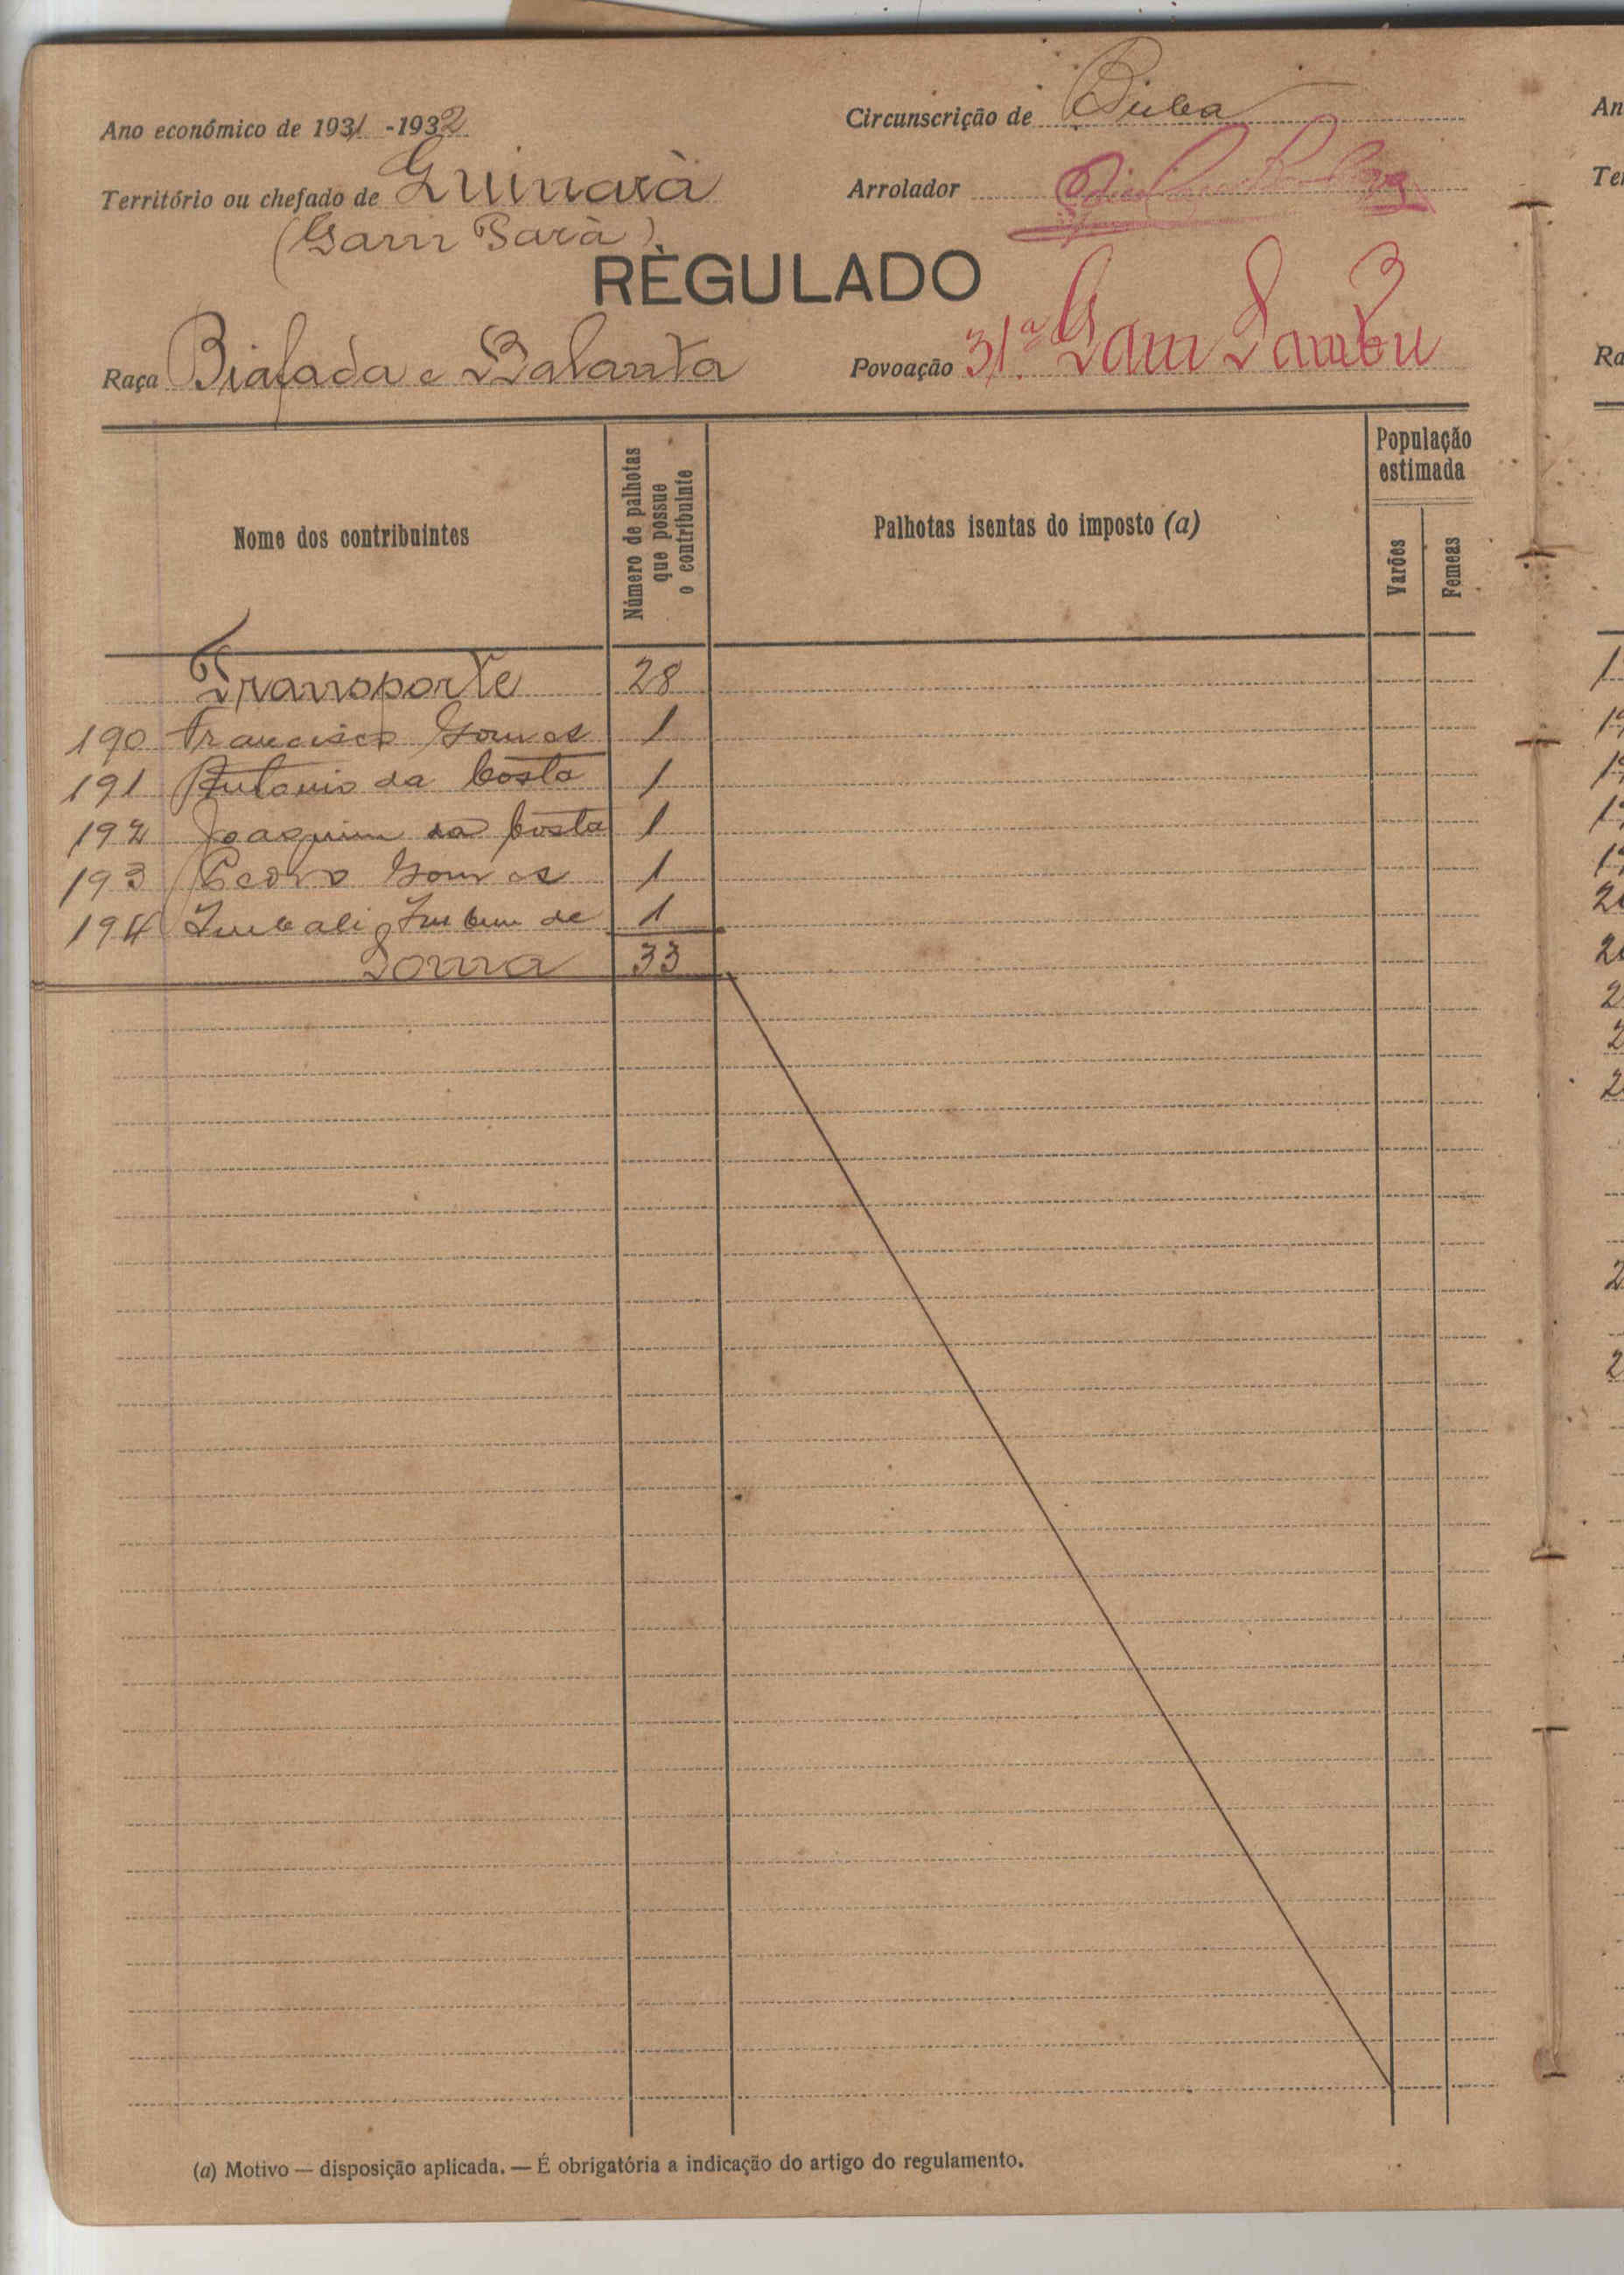 Ano económico de 1931 -1932
Circunscrição de Buba
Território ou chefado de Guinará
Arrolador
(Gam Pará)
RÉGULADO
Raça Biafada e Balanta
Povoação 31.ª Gam Sambu
Nome dos contribuintes
Número de palhotas que possue o contribuinte
Palhotas isentas do imposto (a)
População estimada
Varões
Femeas
Transporte 28
190 Francisco Gomes 1
191 Antonio da Costa 1
192 Joaquim da Costa 1
193 Pedro Gomes 1
194 1
Soma 33
(a) Motivo — disposição aplicada. — É obrigatória a indicação do artigo do regulamento.